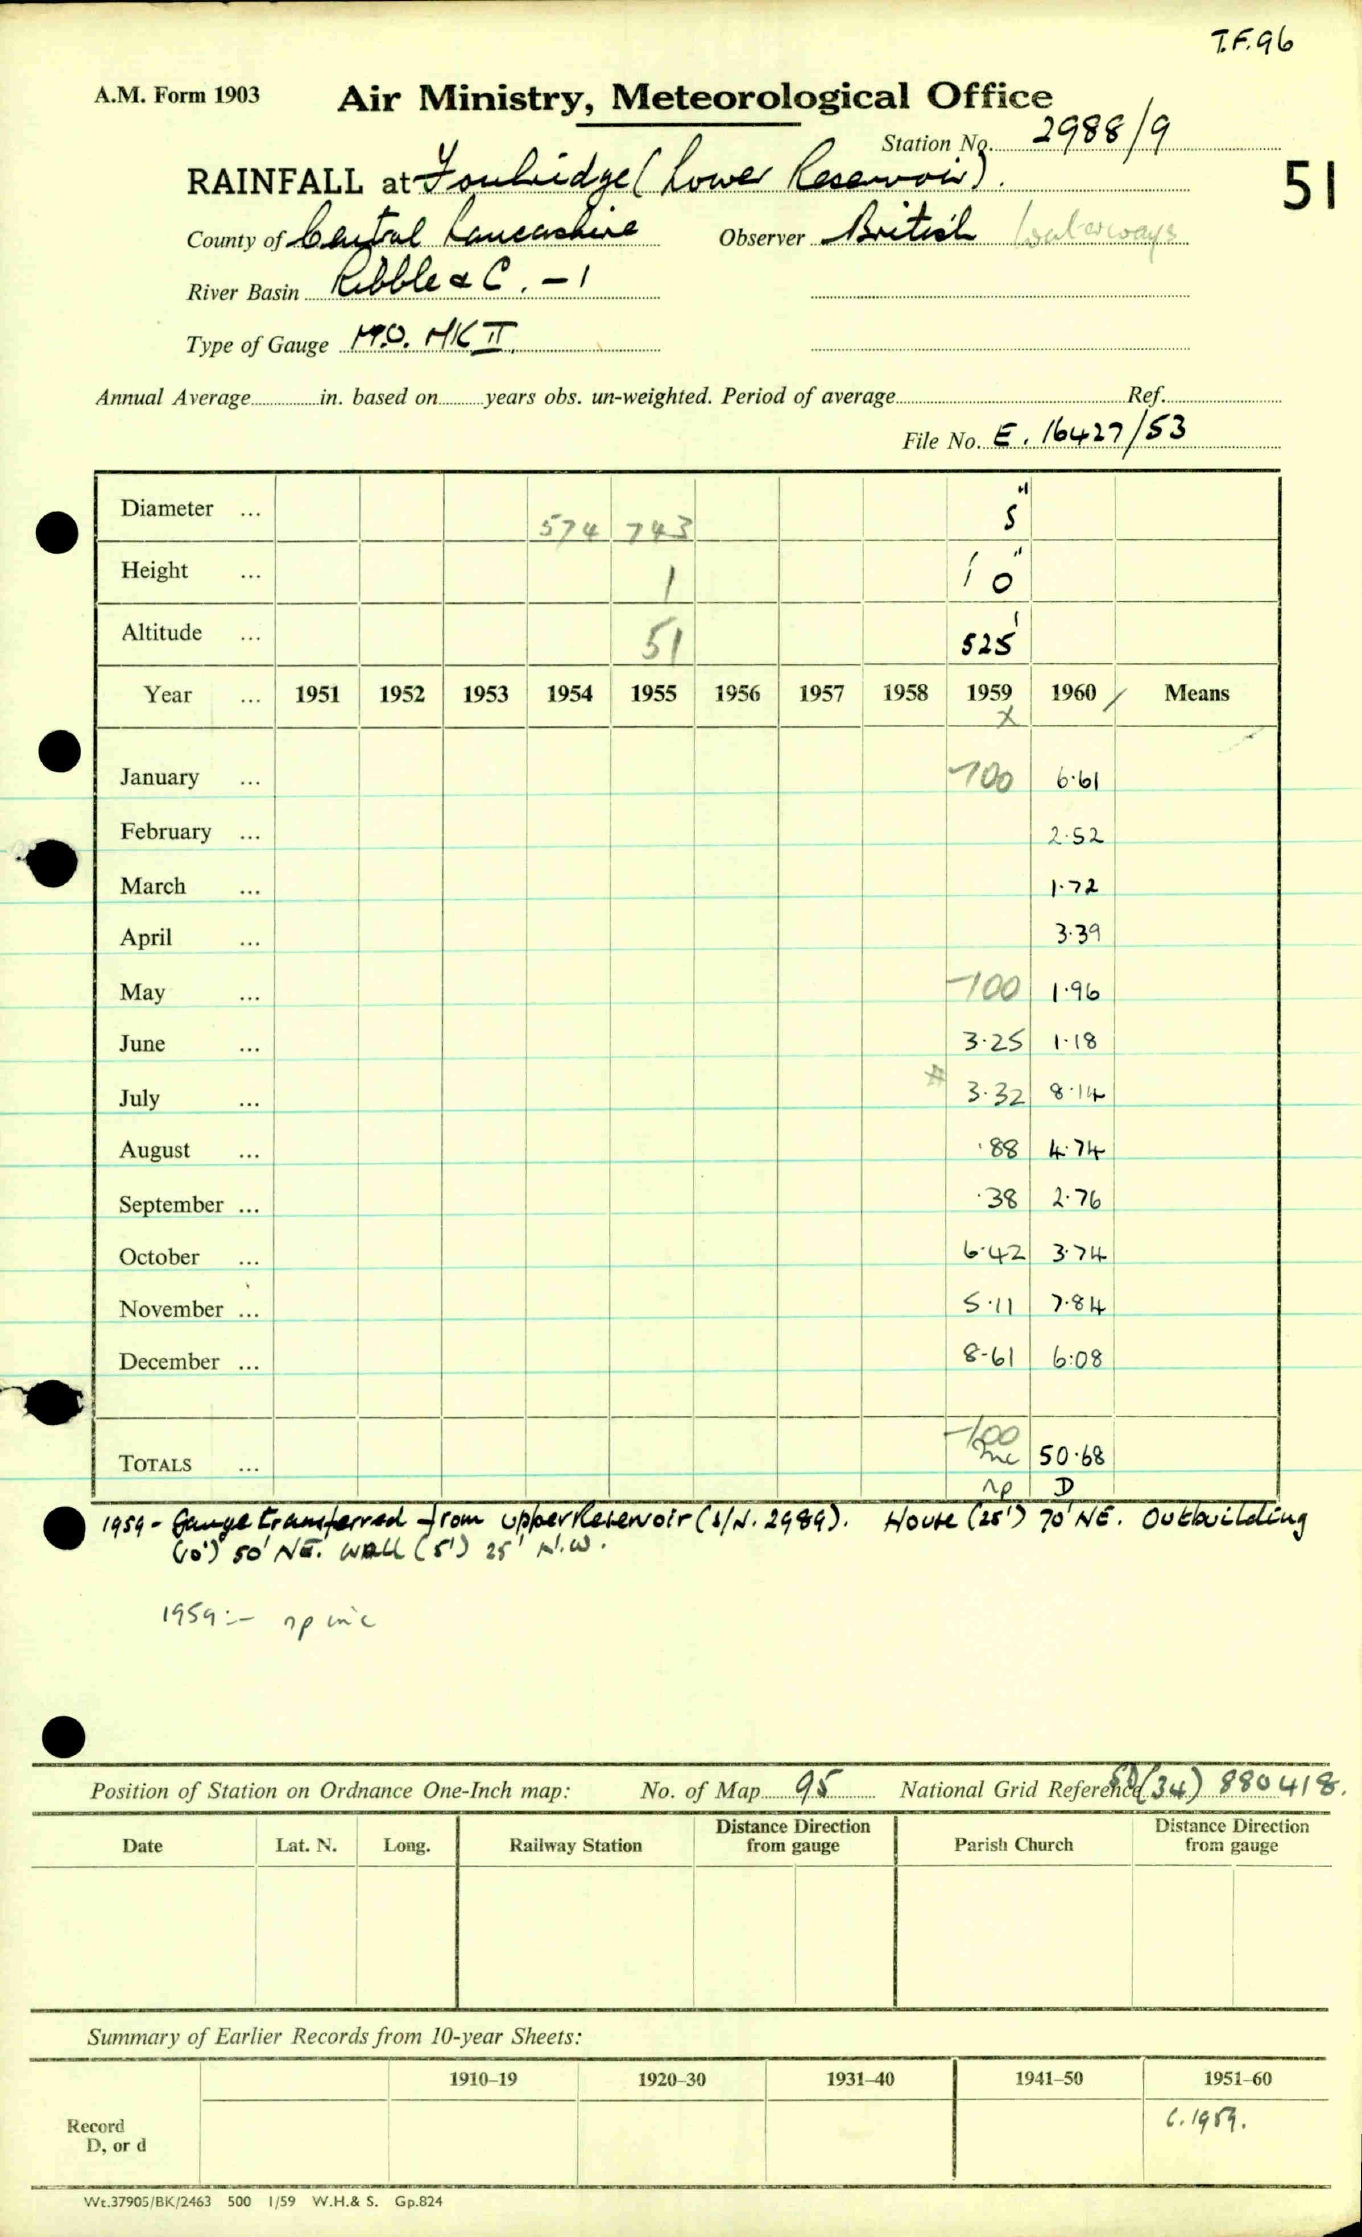 T.F.96
A.M. Form 1903 Air Ministry, Meteorological Office
Station No. 2988/9
51
RAINFALL at Foulridge (Lower Reservoir).
County of Central Lancashire Observer British Waterways
River Basin Ribble & C. – 1
Type of Gauge M.O. MK II
Annual Average in. based on years obs. un-weighted. Period of average Ref.
File No. E. 16427/53
Diameter ... 574 743 5"
Height ... 1 1' 0"
Altitude ... 51 525'
Year ... 1951 1952 1953 1954 1955 1956 1957 1958 1959 1960 / Means
x
January ... -100 6.61
February ... 2.52
March ... 1.72
April ... 3.39
May ... -100 1.96
June ... 3.25 1.18
July ... # 3.32 8.14
August ... .88 4.74
September ... .38 2.76
October ... 6.42 3.74
November ... 5.11 7.84
December ... 8.61 6.08
-100
TOTALS ... Inc 50.68
np D
1959 - Gauge transferred from Upper Reservoir (S/N. 2989). House (25') 70' NE. Outbuilding
(10') 50' NE. Wall (5') 25' N.W.
1959 :- np inc
Position of Station on Ordnance One-Inch map: No. of Map 95 National Grid Reference SD (34) 880418.
Date Lat. N. Long. Railway Station Distance Direction from gauge Parish Church Distance Direction from gauge
Summary of Earlier Records from 10-year Sheets:
1910–19 1920–30 1931–40 1941–50 1951–60
Record
D, or d
C. 1959.
Wt.37905/BK/2463 500 1/59 W.H.& S. Gp.824